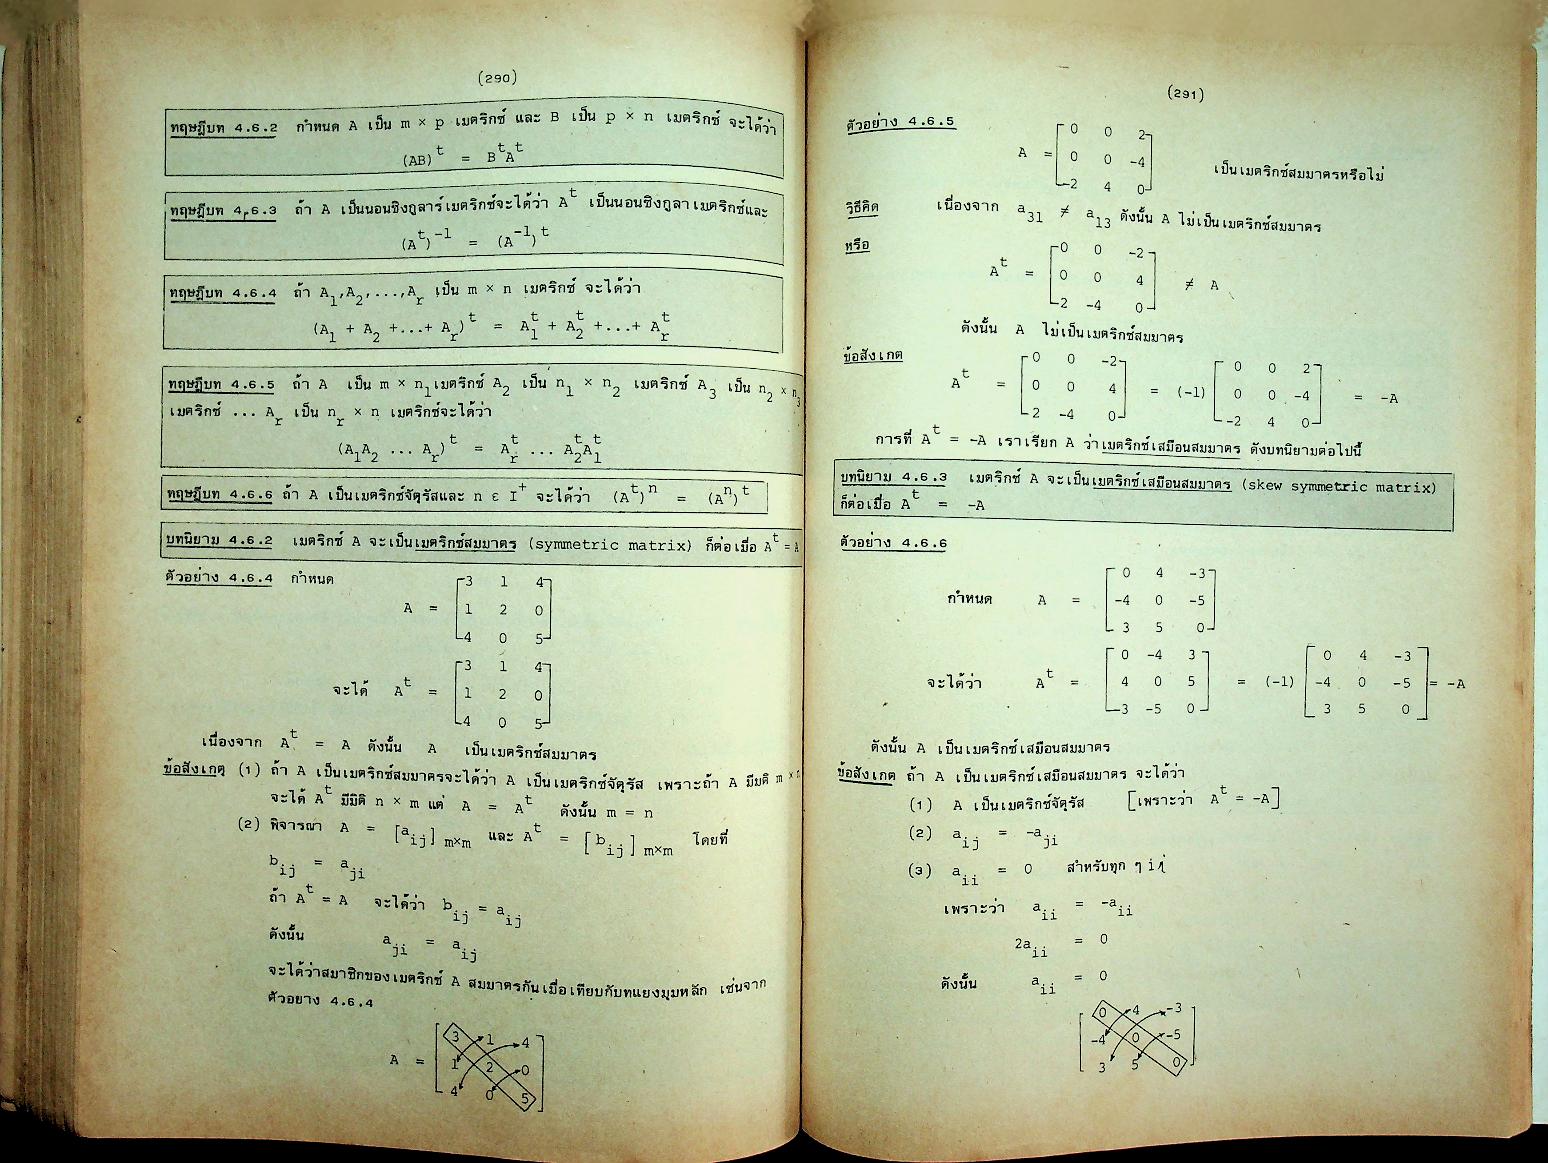 (290)
ทฤษฎีบท 4.6.2 กำหนด A เป็น m × p เมตริกซ์ และ B เป็น p × n เมตริกซ์ จะได้ว่า
(AB)^t = B^t A^t
ทฤษฎีบท 4.6.3 ถ้า A เป็นนอนซิงกูลาร์เมตริกซ์จะได้ว่า A^t เป็นนอนซิงกูลาเมตริกซ์และ
(A^t)^-1 = (A^-1)^t
ทฤษฎีบท 4.6.4 ถ้า A_1,A_2,...,A_r เป็น m × n เมตริกซ์ จะได้ว่า
(A_1 + A_2 +...+ A_r)^t = A_1^t + A_2^t +...+ A_r^t
ทฤษฎีบท 4.6.5 ถ้า A เป็น m × n_1 เมตริกซ์ A_2 เป็น n_1 × n_2 เมตริกซ์ A_3 เป็น n_2 × n_3
เมตริกซ์ ... A_r เป็น n_r × n เมตริกซ์จะได้ว่า
(A_1A_2 ... A_r)^t = A_r^t ... A_2^t A_1^t
ทฤษฎีบท 4.6.6 ถ้า A เป็นเมตริกซ์จัตุรัสและ n ε I^+ จะได้ว่า (A^t)^n = (A^n)^t
บทนิยาม 4.6.2 เมตริกซ์ A จะเป็นเมตริกซ์สมมาตร (symmetric matrix) ก็ต่อเมื่อ A^t = A
ตัวอย่าง 4.6.4 กำหนด
3 1 4
A = 1 2 0
4 0 5
3 1 4
จะได้ A^t = 1 2 0
4 0 5
เนื่องจาก A^t = A ดังนั้น A เป็นเมตริกซ์สมมาตร
ข้อสังเกตุ (1) ถ้า A เป็นเมตริกซ์สมมาตรจะได้ว่า A เป็นเมตริกซ์จัตุรัส เพราะถ้า A มีมติ m × n
จะได้ A^t มีมิติ n × m แต่ A = A^t ดังนั้น m = n
(2) พิจารณา A = [a_ij] m×m และ A^t = [b_ij] m×m โดยที่
b_ij = a_ji
ถ้า A^t = A จะได้ว่า b_ij = a_ij
ดังนั้น a_ji = a_ij
จะได้ว่าสมาชิกของเมตริกซ์ A สมมาตรกันเมื่อเทียบกับทแยงมุมหลัก เช่นจาก
ตัวอยาง 4.6.4
3 1 4
A = 1 2 0
4 0 5
(291)
ตัวอย่าง 4.6.5
0 0 2
A = 0 0 -4 เป็นเมตริกซ์สมมาตรหรือไม่
-2 4 0
วิธีคิด เนื่องจาก a_31 ≠ a_13 ดังนั้น A ไม่เป็นเมตริกซ์สมมาตร
หรือ
0 0 -2
A^t = 0 0 4 ≠ A
2 -4 0
ดังนั้น A ไม่เป็นเมตริกซ์สมมาตร
ข้อสังเกต
0 0 -2 0 0 2
A^t = 0 0 4 = (-1) 0 0 -4 = -A
2 -4 0 -2 4 0
การที่ A^t = -A เราเรียก A ว่าเมตริกซ์เสมือนสมมาตร ดังบทนิยามต่อไปนี้
บทนิยาม 4.6.3 เมตริกซ์ A จะเป็นเมตริกซ์เสมือนสมมาตร (skew symmetric matrix)
ก็ต่อเมื่อ A^t = -A
ตัวอย่าง 4.6.6
0 4 -3
กำหนด A = -4 0 -5
3 5 0
0 -4 3 0 4 -3
จะได้ว่า A^t = 4 0 5 = (-1) -4 0 -5 = -A
-3 -5 0 3 5 0
ดังนั้น A เป็นเมตริกซ์เสมือนสมมาตร
ข้อสังเกต ถ้า A เป็นเมตริกซ์เสมือนสมมาตร จะได้ว่า
(1) A เป็นเมตริกซ์จัตุรัส [เพราะว่า A^t = -A]
(2) a_ij = -a_ji
(3) a_ii = 0 สำหรับทุก ๆ i
เพราะว่า a_ii = -a_ii
2a_ii = 0
ดังนั้น a_ii = 0
0 4 -3
-4 0 -5
3 5 0